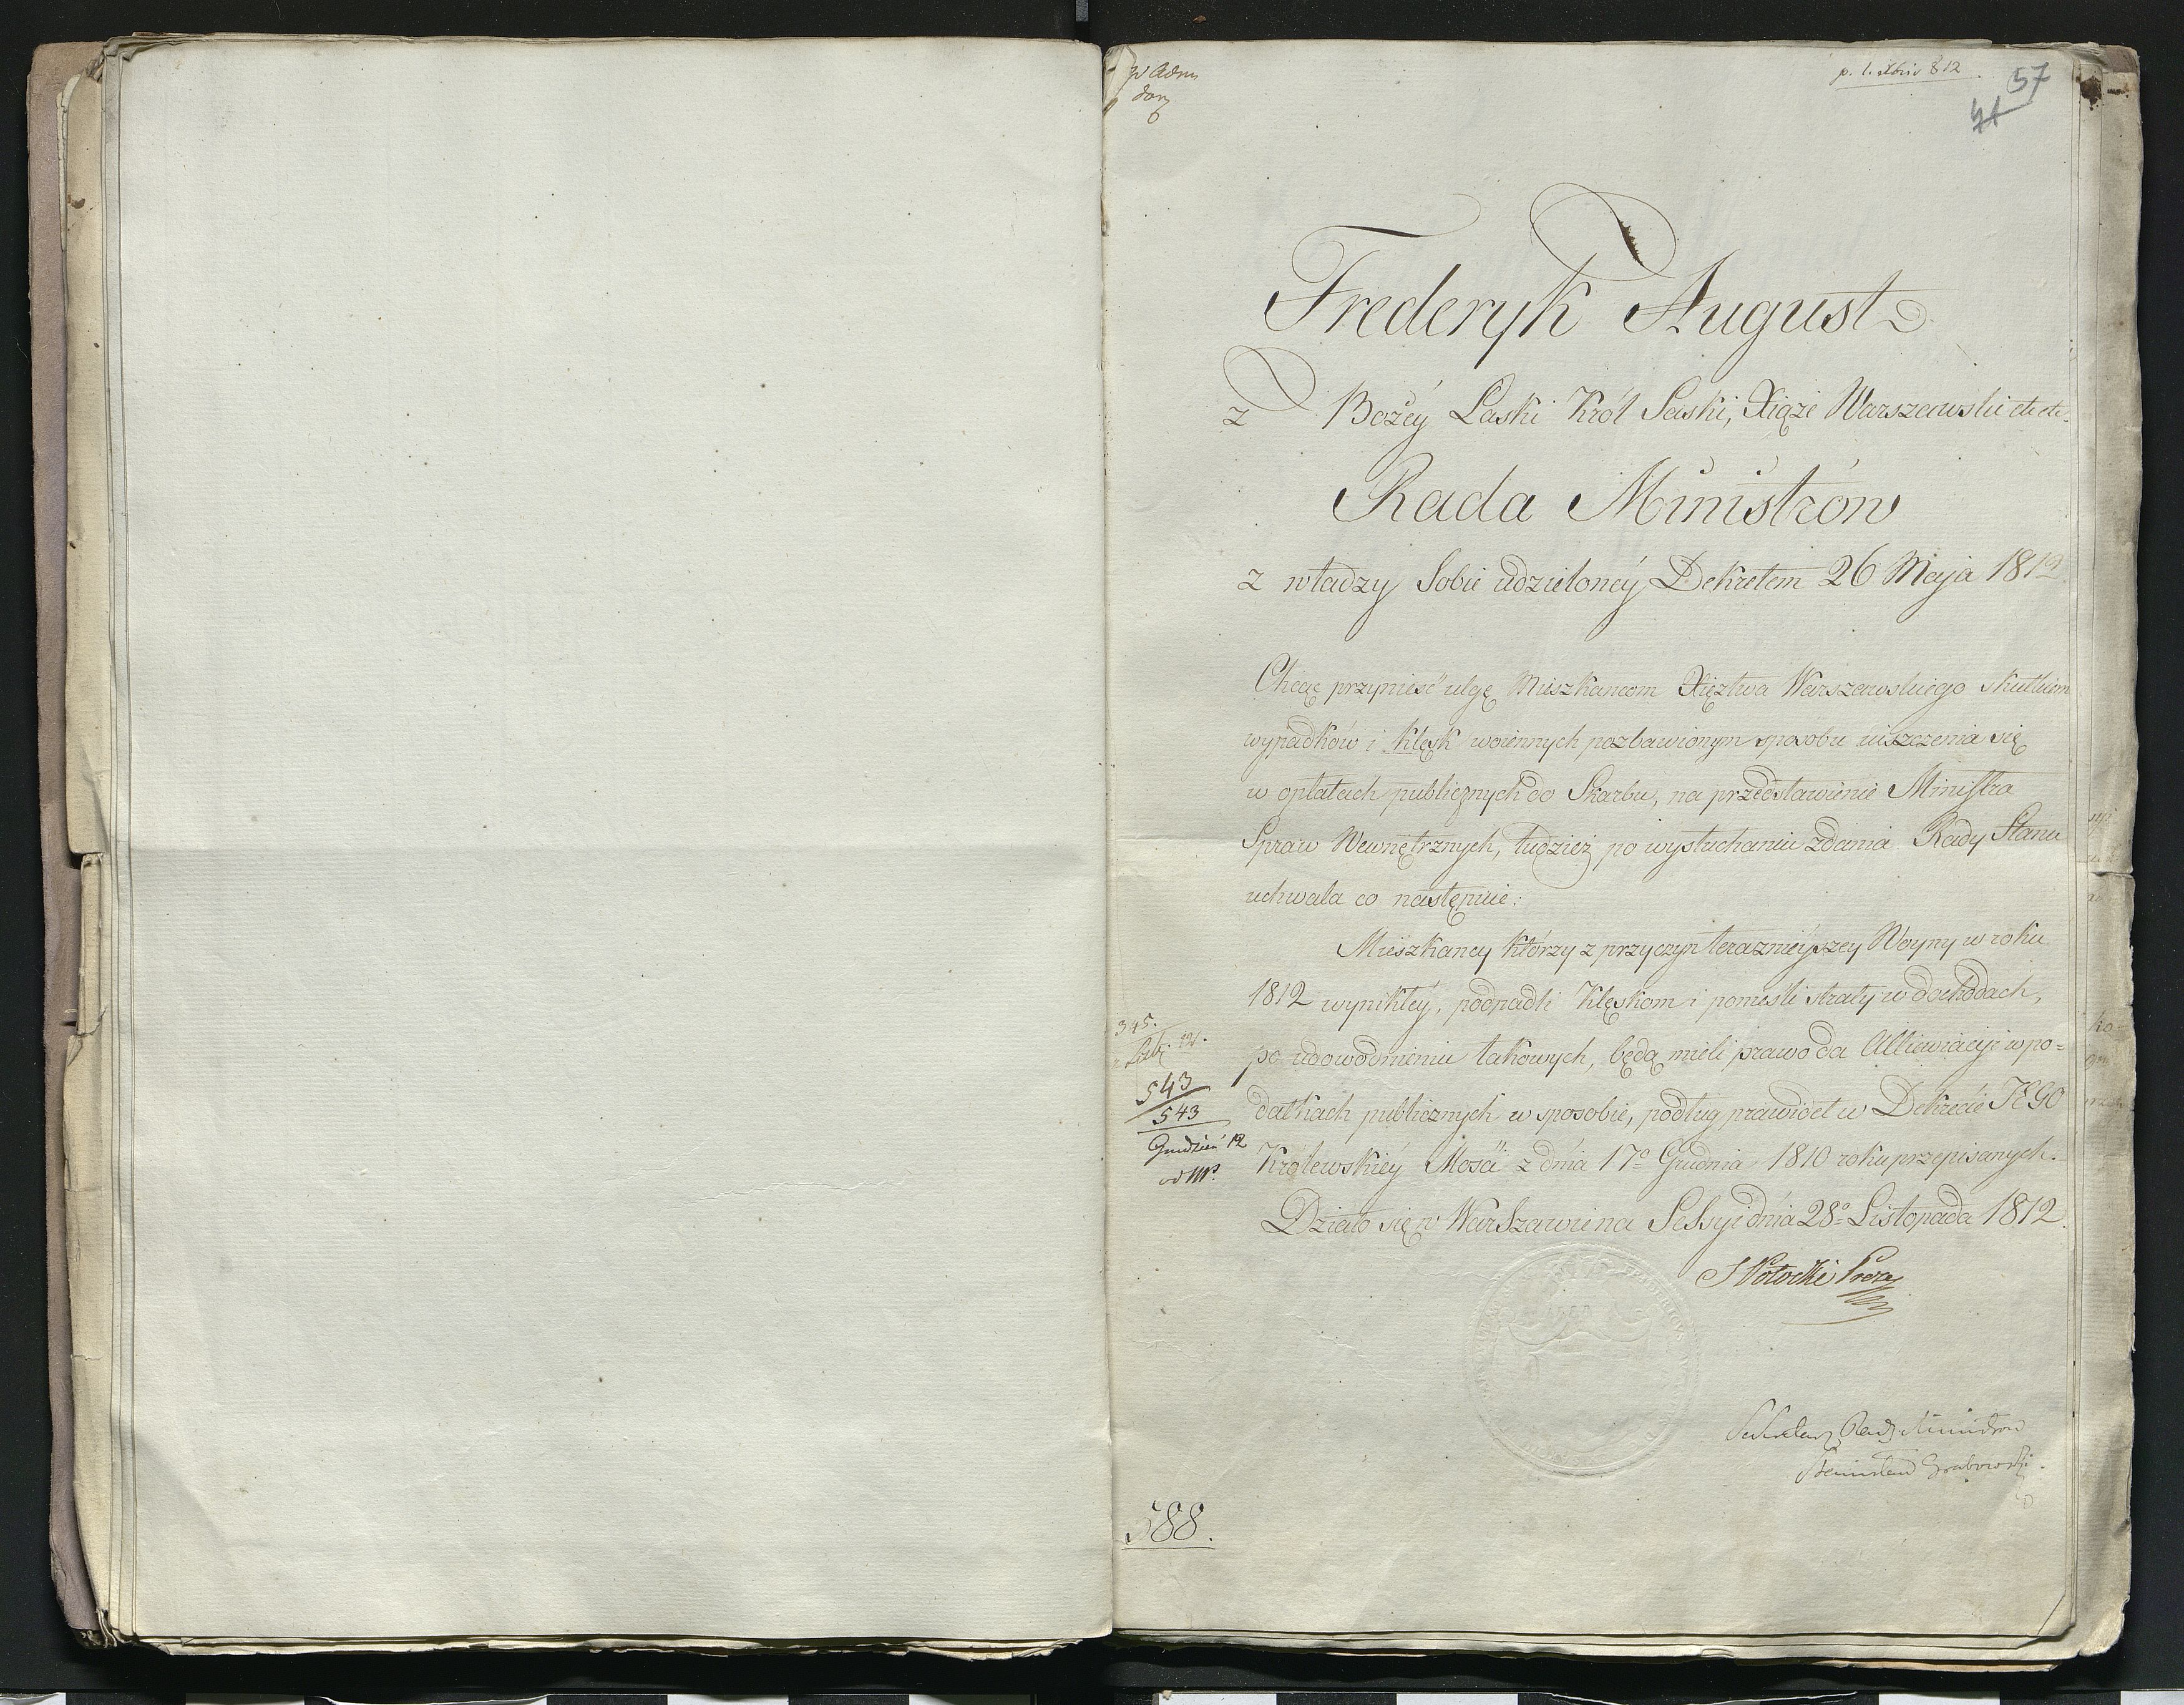 W Adm
p. 1. xbris 812
57
41
Frederyk August
z Bożéy Łaski Król Saski, Xiąże Warszawski etc etc.
Rada Ministrów
z władzy Sobie udzielonéy Dekretem 26 Maja 1812
Chcąc przynieść ulgę Mieszkańcom Xięztwa Warszawskiego skutkiem
wypadków i klęsk woiennych pozbawionym sposobu uiszczenia się
w opłatach publicznych do Skarbu, na przedstawienie Ministra
Spraw Wewnętrznych, tudzież po wysłuchaniu zdania Rady Stanu
uchwala co następuie:
Mieszkańcy którzy z przyczyn teraznieyszey Woyny w roku
1812 wynikłéy, podpadli klęskom i ponieśli straty w dochodach,
po udowodnieniu takowych, będą mieli prawo do Alliewiacyi w po=
datkach publicznych w sposobie, podług prawideł w Dekrecie JEGO
Królewskiéy Mości z dnia 17º Grudnia 1810 roku przepisanych.
Działo się w Warszawie na Sessyi dnia 28º Listopada 1812.
345.
12.
543
543
Grudzień 12
od M.
S Potocki Prezes
Sekretarz Rady Ministrow
Stanisław Grabowski.
588.